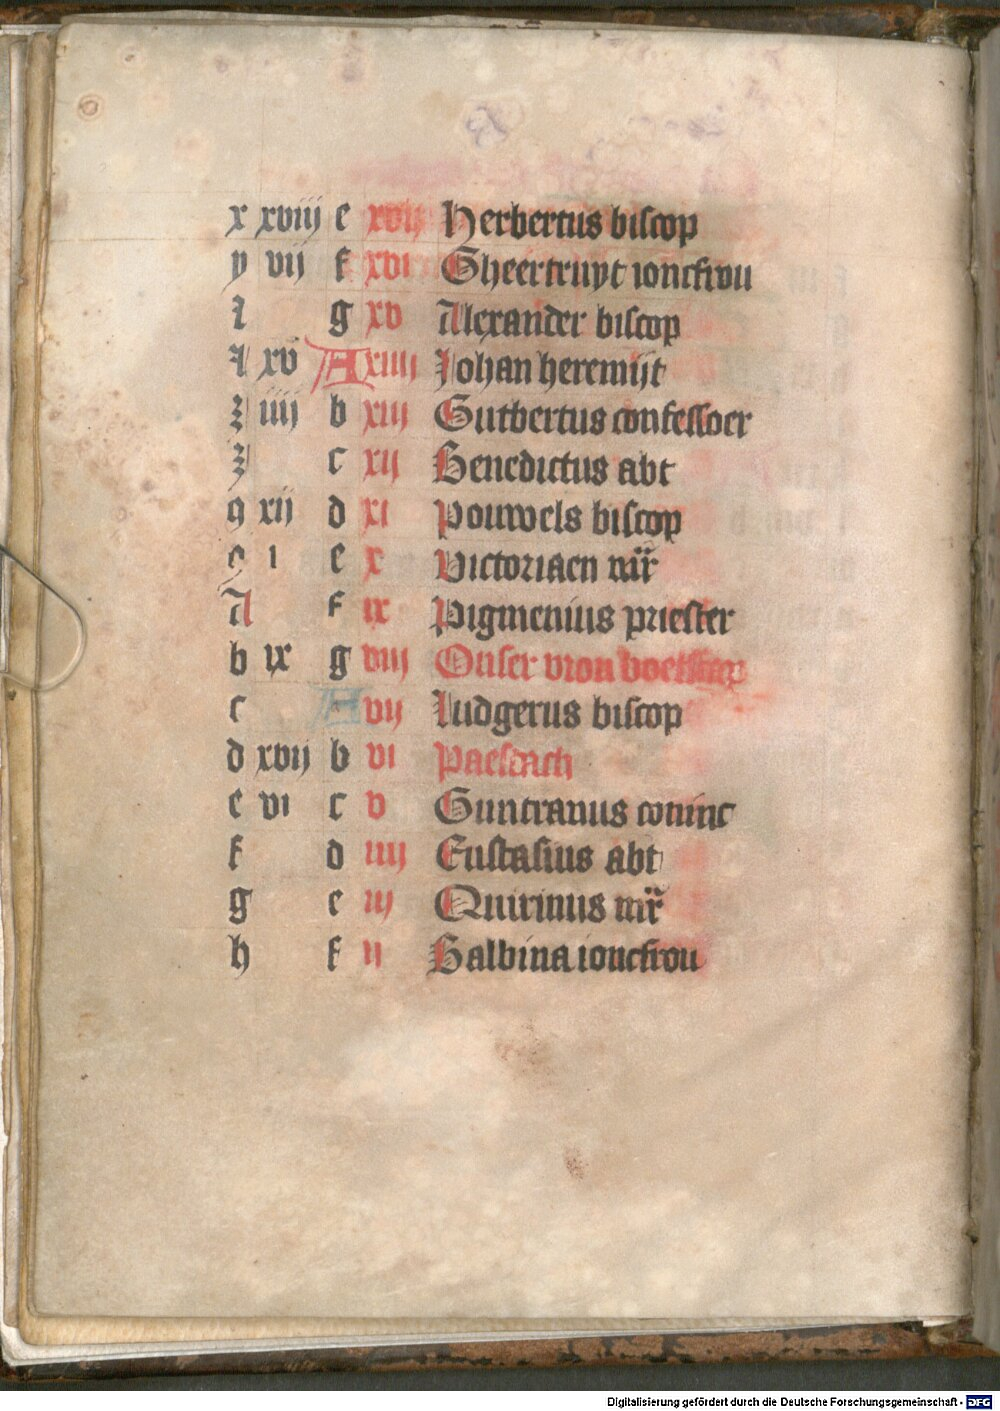 x xviij e xvij Herbertus biscop
y vij f xvi Gheertruyt ioncfrou
z g xv Alexander biscop
xv A xiiij Johan heremijt
iiij b xiij Gutbertus confessoer
c xij Benedictus abt
9 xij d xi Pouwels biscop
i e x Victoriaen mr̄
A f ix Pigmenius priester
b ix g viij Onser vrou boetscap
c A vij Ludgerus biscop
d xvij b vi Paeschdach
e vi c v Guntranus coninc
f d iiij Eustasius abt
g e iij Quirinus mr̄
h f ij Balbina ioncfrou
Digitalisierung gefördert durch die Deutsche Forschungsgemeinschaft - DFG